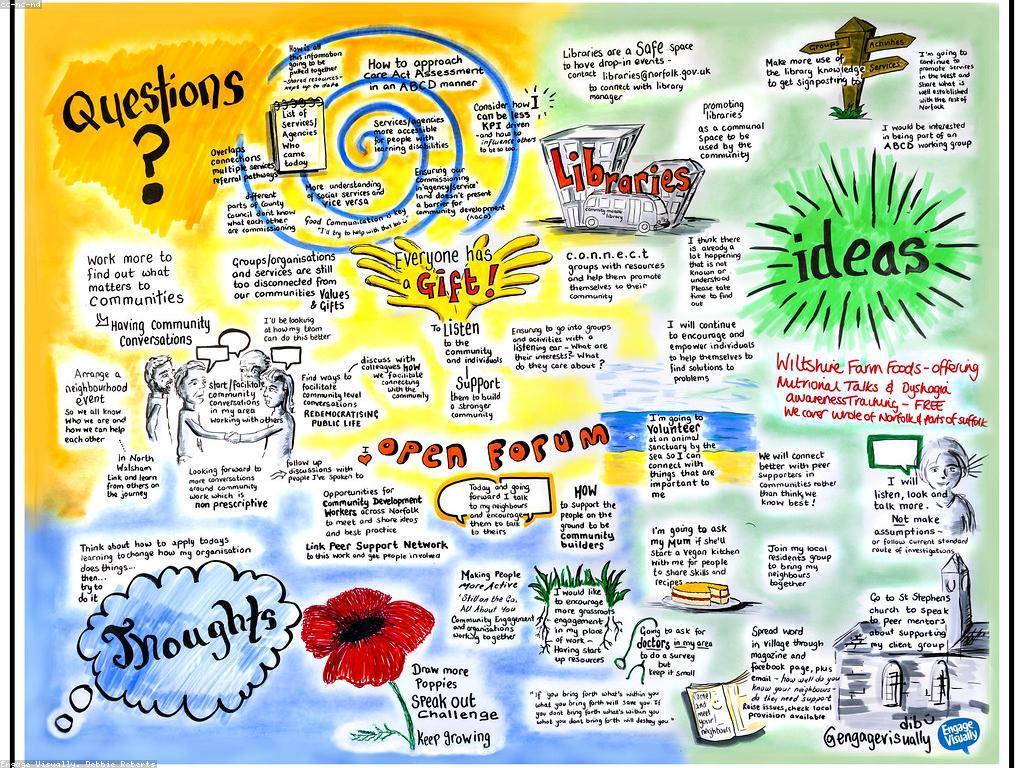 cc-nc-nd
Questions
?
How is all
this information
going to be
pulled together
-shared resources-
kept up to date
How to approach
care Act Assessment
in an ABCD manner
List of
Services/
Agencies
Who
came
today
Services/agencies
more accessible
for people with
learning disabilities
Consider how I
can be less
KPI driven
-and how to
influence others
to be so too
Overlaps
connections
multiple services
referral pathways
different
parts of County
Council dont know
what each other
are commissioning
More understanding
of social services and
vice versa
Good Communication is key
"I'll try to help with that bit"
Ensuring our
commissioning
in agency/service
land doesn't present
a barrier for
community development
(ABCD)
Libraries are a Safe space
to have drop-in events -
contact libraries@norfolk.gov.uk
to connect with library
manager
Libraries
community mobile
library
promoting
libraries
as a communal
space to be
used by the
community
Groups
Activities
Services
Make more use of
the library knowledge
to get signposting to
I'm going to
continue to
promote services
in the West and
share what is
well established
with the rest of
Norfolk
I would be interested
in being part of an
ABCD working group
ideas
Work more to
find out what
matters to
communities
Having Community
Conversations
Groups/organisations
and services are still
too disconnected from
our communities Values
& Gifts
I'll be looking
at how my team
can do this better
Everyone has
a Gift!
To Listen
to the
community
and individuals
Support
them to build
a stronger
community
c.o.n.n.e.c.t
groups with resources
and help them promote
themselves to their
community
I think there
is already a
lot happening
that is not
known or
understood
Please take
time to find
out
Ensuring to go into groups
and activities with a
listening ear - What are
their interests? What
do they care about?
I will continue
to encourage and
empower individuals
to help themselves to
find solutions to
problems
Wiltshire Farm Foods - offering
Nutrional Talks & Dyshagia
awareness Training - FREE
We cover whole of Norfolk & Parts of suffolk
Arrange a
neighbourhood
event
So we all know
Who we are and
how we can help
each other
start/facilitate
community
conversations
in my area
working with others
Find ways to
facilitate
community level
conversations
REDEMOCRATISING
PUBLIC LIFE
discuss with
colleagues how
we facilitate
connecting
with the
community
In North
Walsham
Link and learn
from others on
the journey
Looking forward to
more conversations
around community
work which is
non prescriptive
follow up
discussions with
people I've spoken to
I
OPEN FORUM
Opportunities for
Community Development
Workers across Norfolk
to meet and share ideas
and best practice
Link Peer Support Network
to this work and get people involved
Today and going
forward I talk
to my neighbours
and encourage
them to talk
to theirs
HOW
to support the
people on the
ground to be
community
builders
I'm going to
Volunteer
at an animal
sanctuary by the
sea so I can
connect with
things that are
important to
me
We will connect
better with peer
supporters in
communities rather
than think we
know best!
I will
listen, look and
talk more.
Not make
assumptions-
or follow current standard
route of investigations
Think about how to apply todays
learning to change how my organisation
does things...
then...
try to
do it
Thoughts
Draw more
Poppies
Speak out
Challenge
Keep growing
Making People
More Active
'Still on the Go,
All About You
Community Engagement
and organisations
working together
I would like
to encourage
more grassroots
engagement
in my place
of work -
Having start
up resources
I'm going to ask
my Mum if she'll
start a vegan kitchen
with me for people
to share skills and
recipes
Join my local
residents group
to bring my
neighbours
together
Going to ask for
doctors in my area
to do a survey
but
keep it small
"If you bring forth what's within you
what you bring forth will save you. If
you dont bring forth what's within you
what you dont bring forth will destroy you"
Come
and
meet
your
neighbours
Spread word
in village through
magazine and
facebook page, plus
email - how well do you
know your neighbours-
do they need support
Raise issues, check local
provision available
Go to St Stephens
church to speak
to peer mentors
about supporting
my client group
dibu
@engagevisually
Engage
Visually
Engage Visually. Debbie Roberts